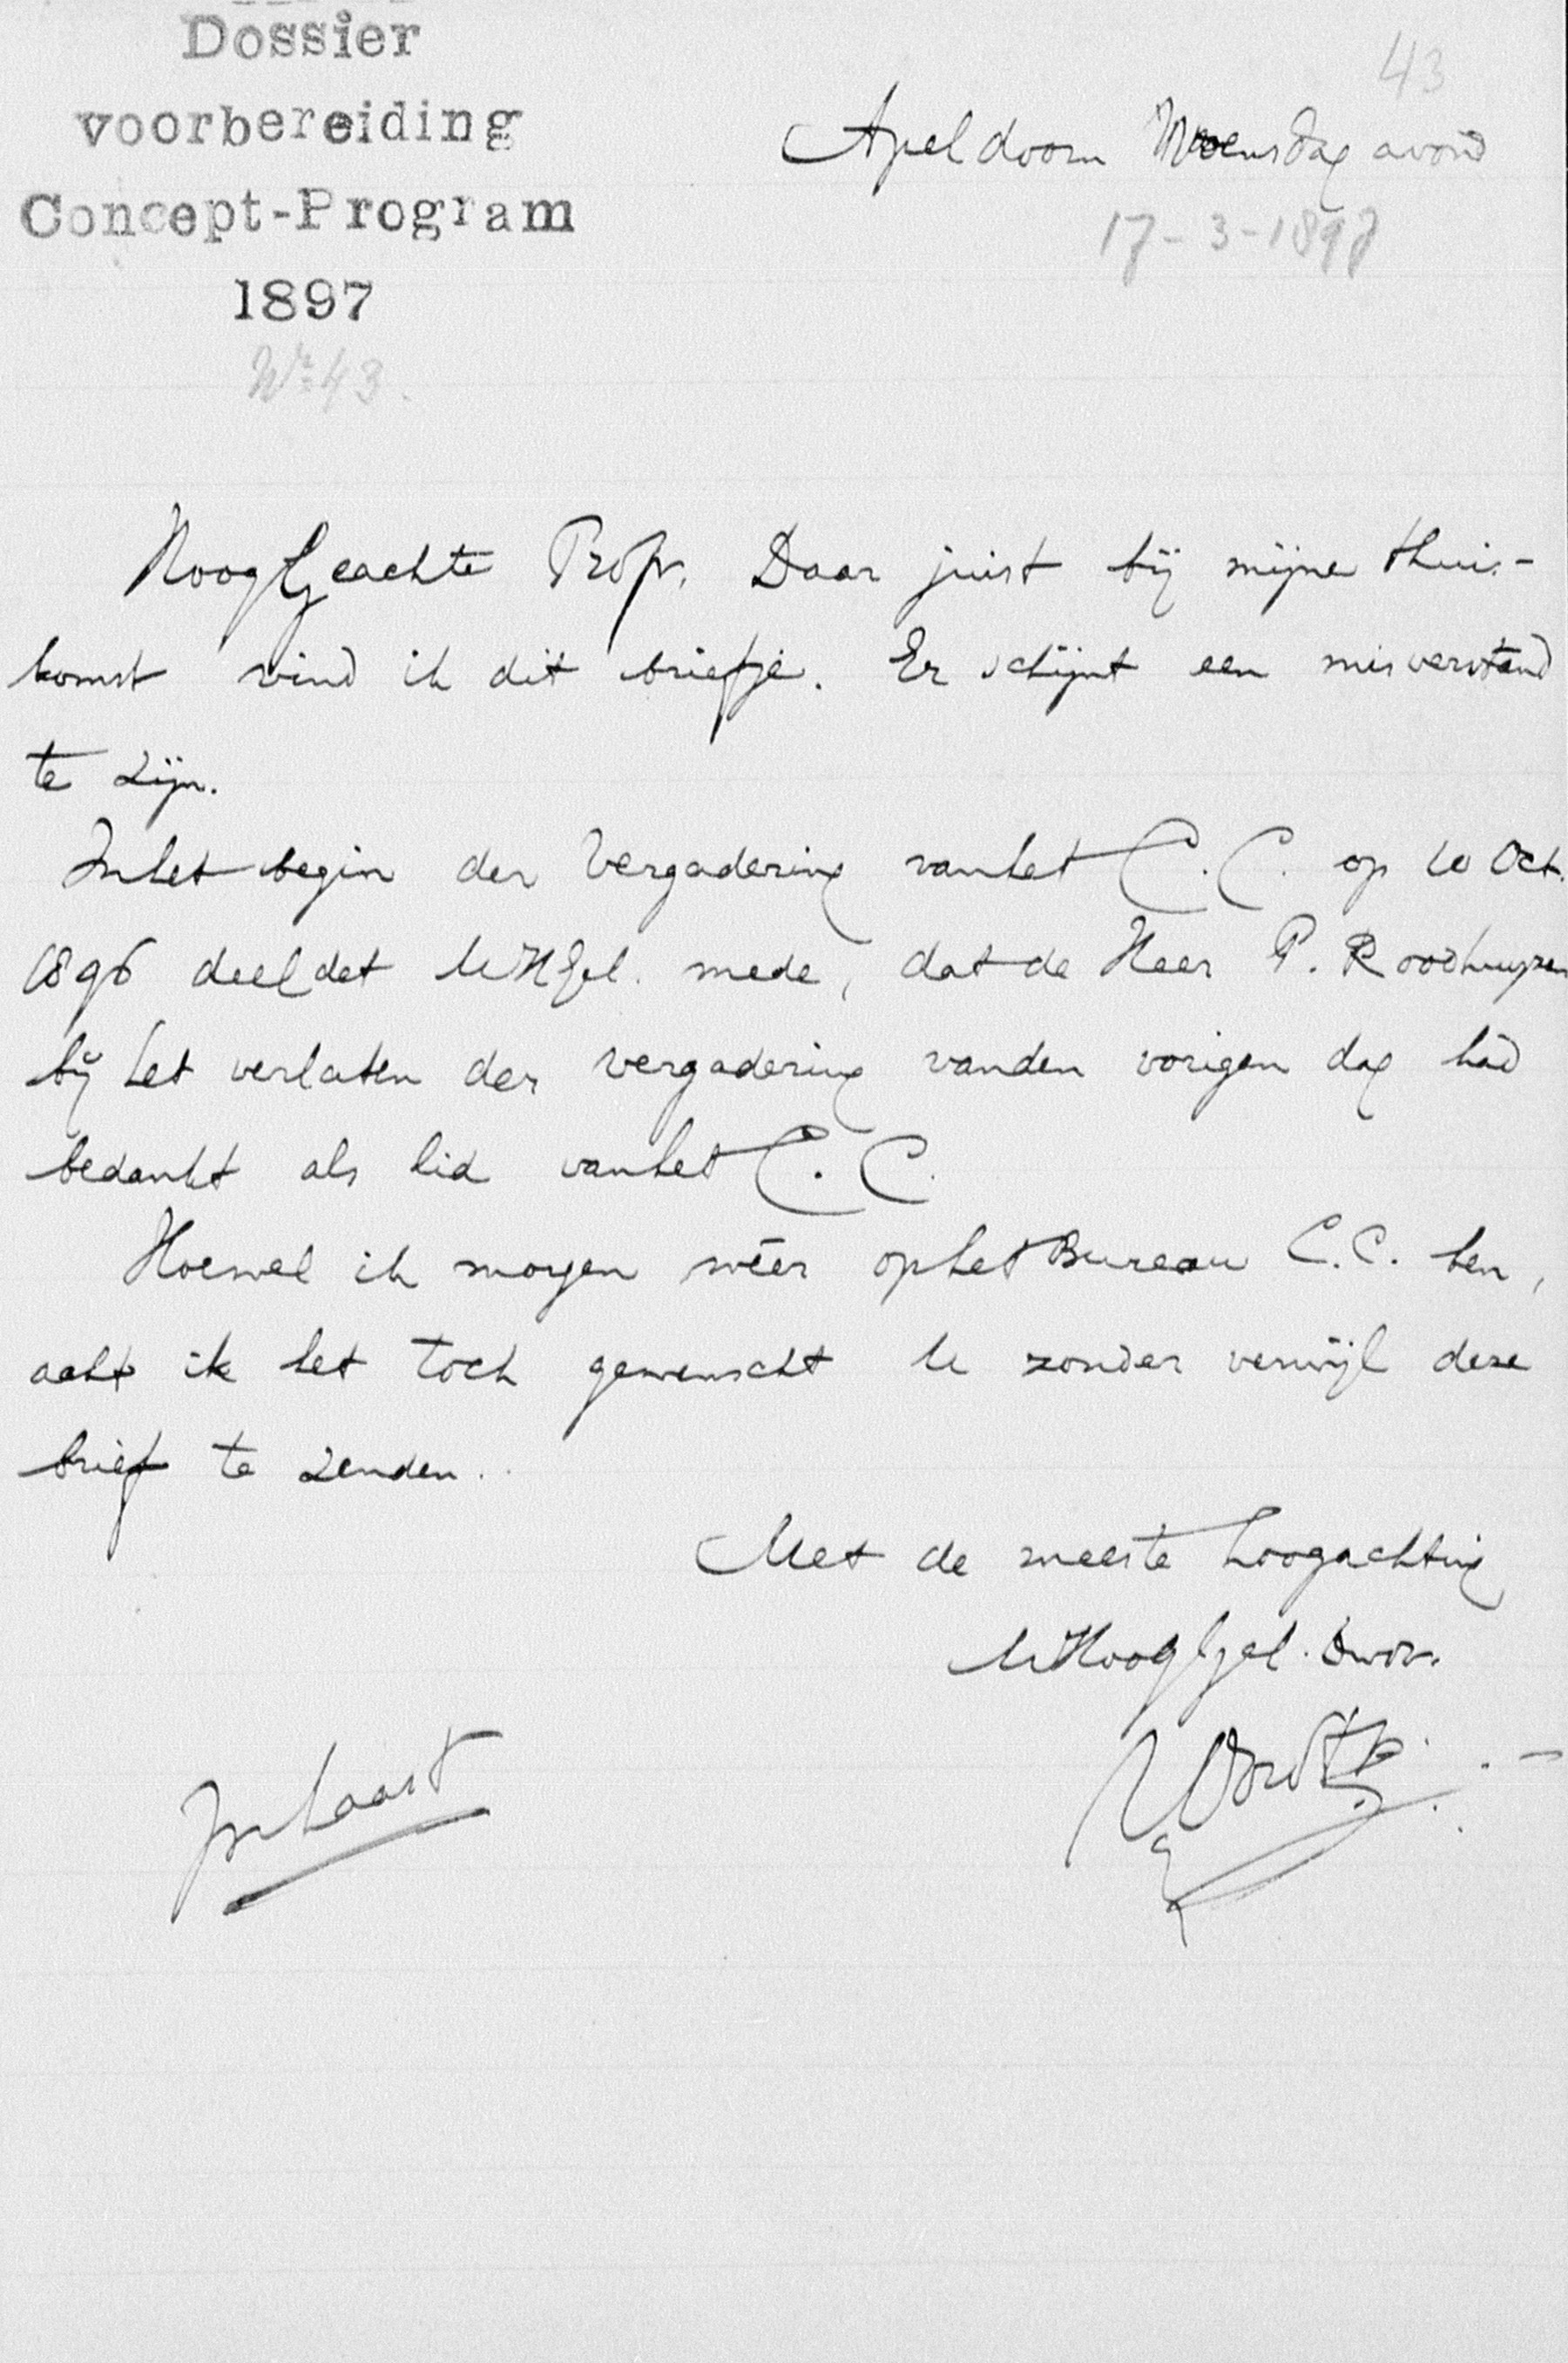 Dossier
voorbereiding
Concept-Program
1897
No 43.
43
Apeldoorn Woensdag avond
17-3-1897
HoogGeachte Prof. Daar juist bij mijne thuis-
komst vind ik dit briefje. Er schijnt een misverstand
te zijn.
In het begin der Vergadering van het C.C. op 10 Oct.
1896 deeldet UHGel. mede, dat de Heer P. Roodhuyzen
bij het verlaten der vergadering van den vorigen dag had
bedankt als lid van het C.C.
Hoewel ik morgen wéér op het Bureau C.C. ben,
acht ik het toch gewenscht U zonder verwijl deze
brief te zenden.
Met de meeste hoogachting
UHoogGel. Dwdr.
In haast